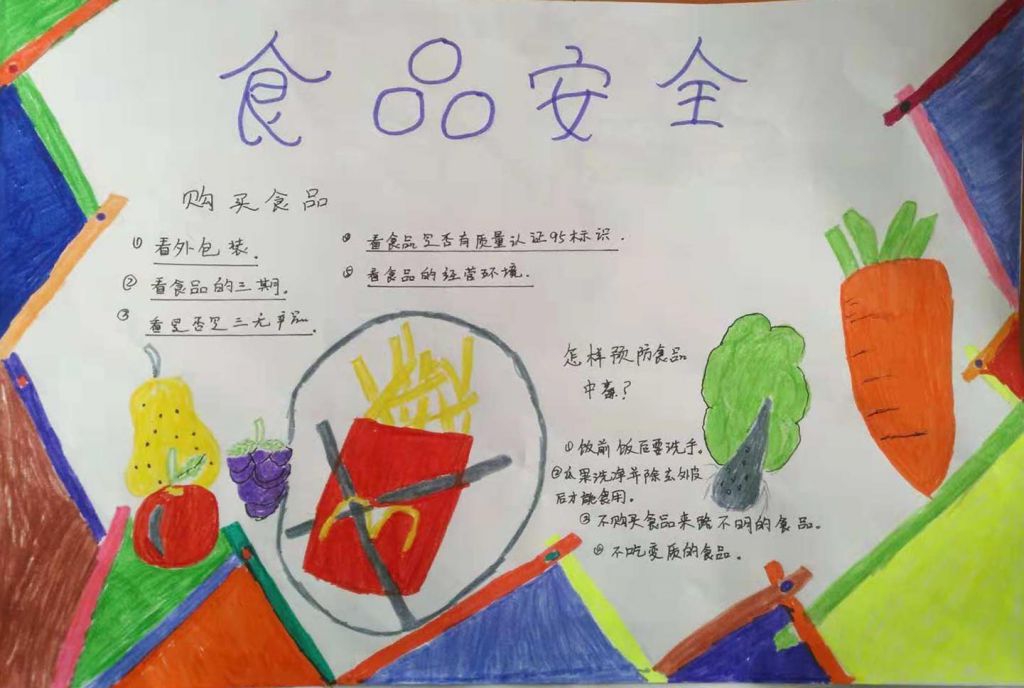 食品安全
购买食品
① 看外包装.
② 看食品的三期.
③ 看是否是三无产品.
④ 看食品是否有质量认证95标识.
⑤ 看食品的经营环境.
怎样预防食品
中毒?
①饭前饭后要洗手。
②瓜果洗净并除去外皮
后才能食用。
③不购买食品来路不明的食品。
④不吃变质的食品。